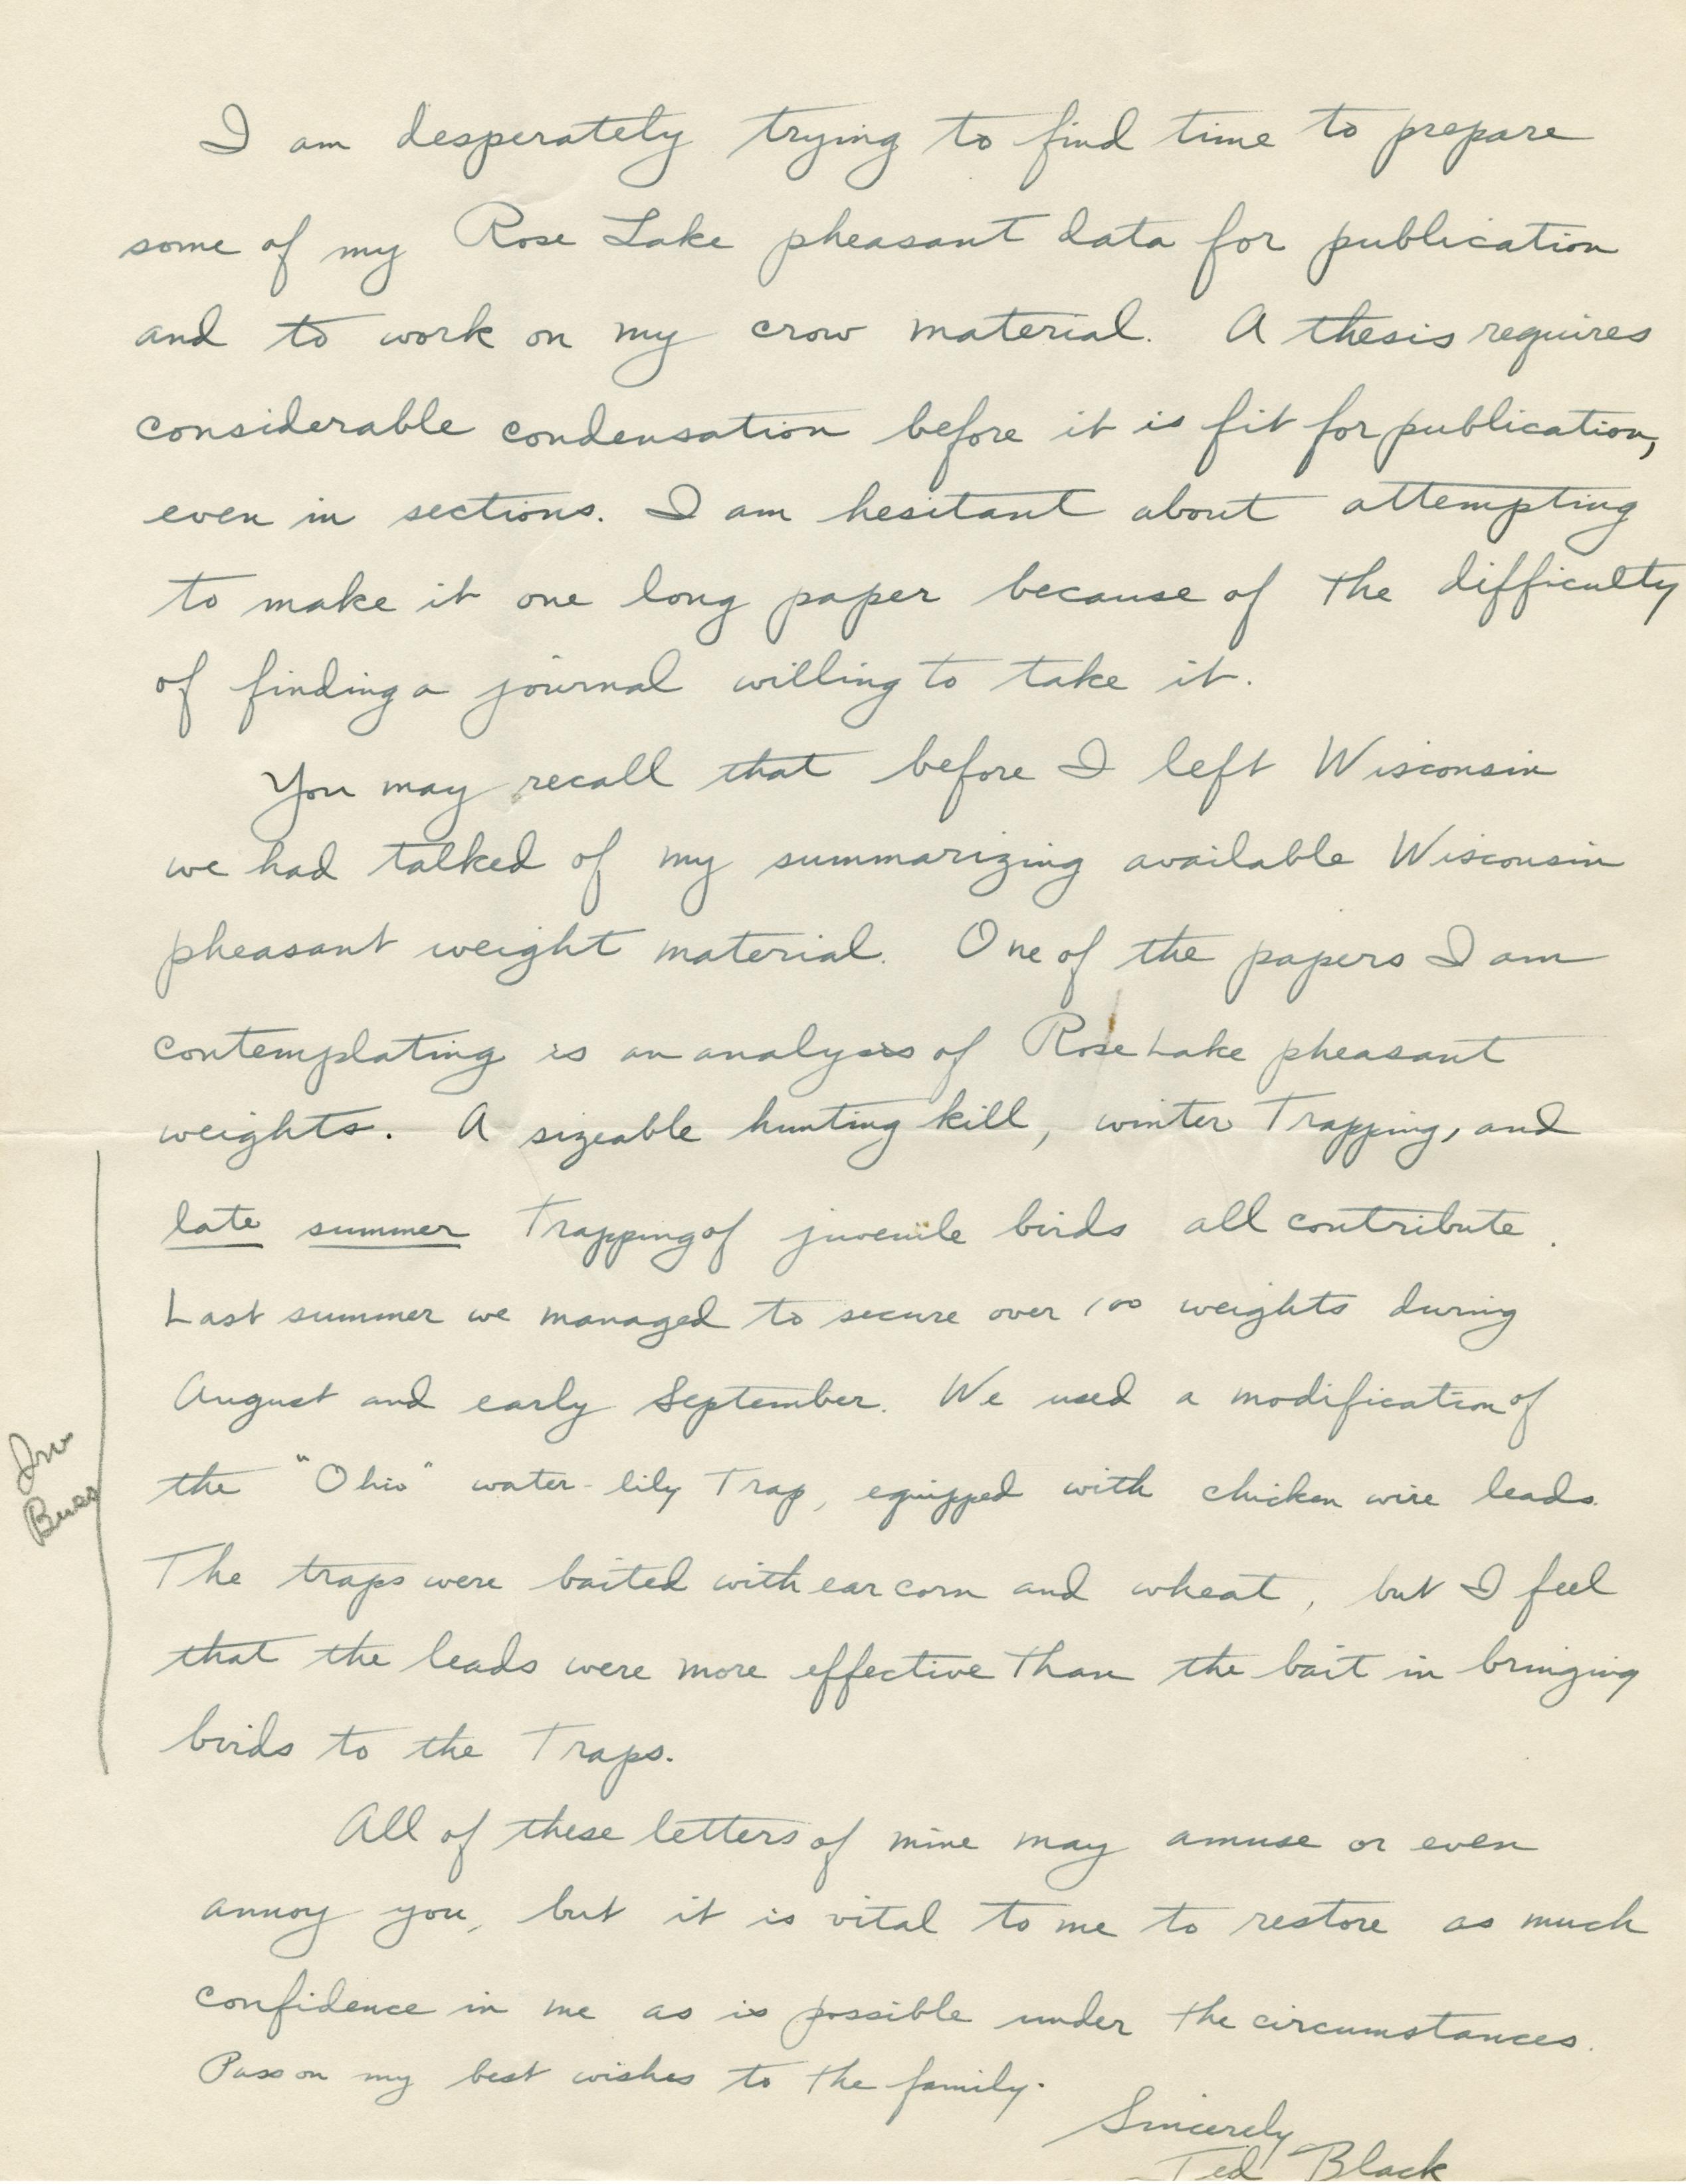 I am desperately trying to find time to prepare
some of my Rose Lake pheasant data for publication
and to work on my crow material. A thesis requires
considerable condensation before it is fit for publication,
even in sections. I am hesitant about attempting
to make it one long paper because of the difficulty
of finding a journal willing to take it.
You may recall that before I left Wisconsin
we had talked of my summarizing available Wisconsin
pheasant weight material. One of the papers I am
contemplating is an analysis of Rose Lake pheasant
weights. A sizeable hunting kill, winter Trapping, and
late summer Trapping of juvenile birds all contribute.
Last summer we managed to secure over 100 weights during
August and early September. We used a modification of
the "Ohio" water-lily Trap, equipped with chicken wire leads.
The traps were baited with ear corn and wheat, but I feel
that the leads were more effective than the bait in bringing
birds to the Traps.
Irv
Buss
All of these letters of mine may amuse or even
annoy you, but it is vital to me to restore as much
confidence in me as is possible under the circumstances.
Pass on my best wishes to the family.
Sincerely
Ted Black